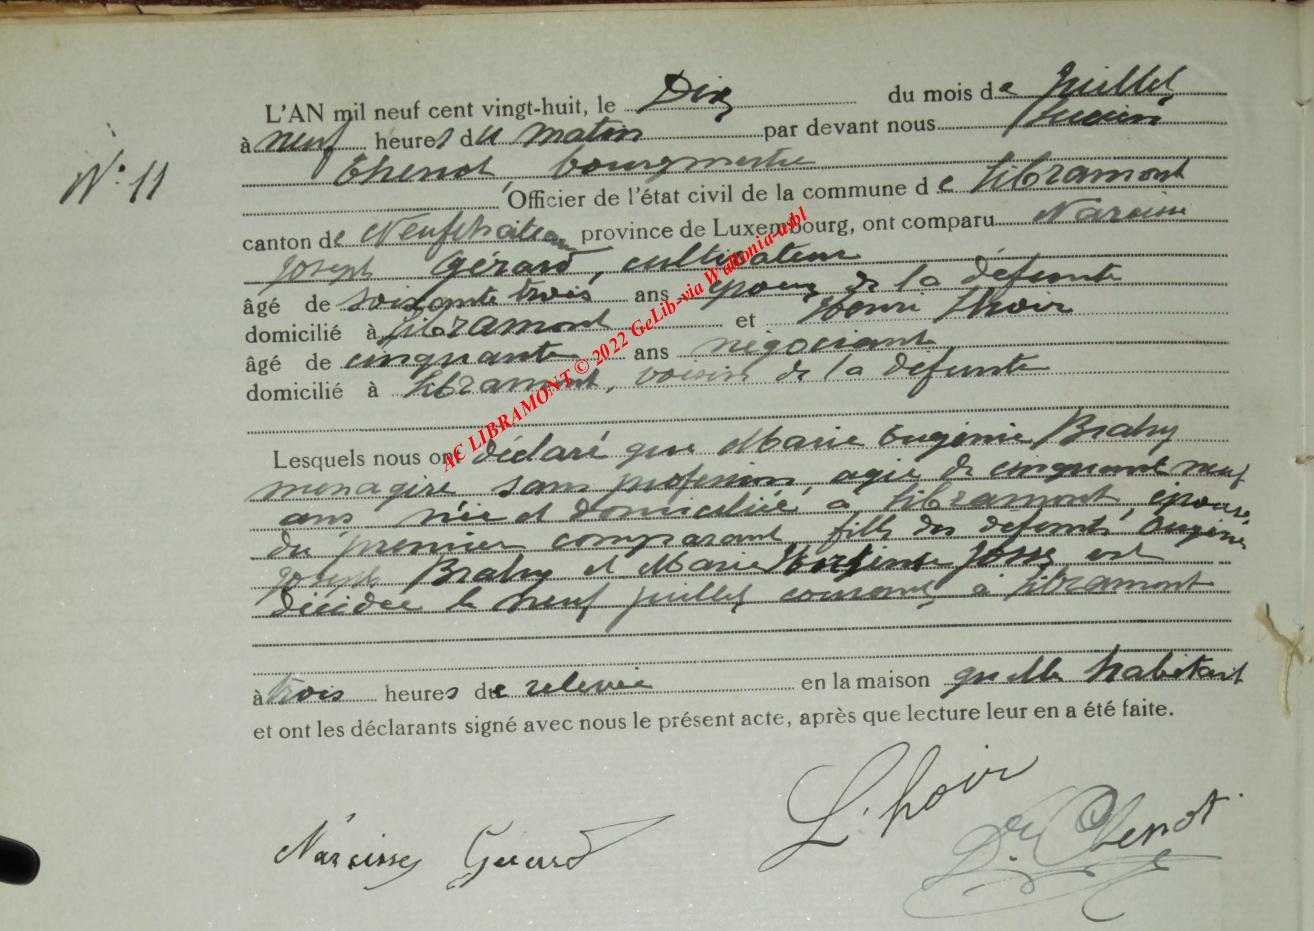 L'AN mil neuf cent vingt-huit, le Dix du mois de Juillet
à neuf heures du matin par devant nous Lucien
N° 11
Thenot bourgmestre
Officier de l'état civil de la commune de Libramont
canton de Neufchateau province de Luxembourg, ont comparu Narcisse
Joseph Gérard, cultivateur
âgé de soixante trois ans époux de la défunte
domicilié à Libramont et Henri Lhoir
âgé de cinquante ans négociant
domicilié à Libramont, voisin de la défunte
AC LIBRAMONT © 2022 GeLib-via Wallonia-asbl
Lesquels nous ont déclaré que Marie Eugénie Brahy
ménagère sans profession, agée de cinquante neuf
ans née et domiciliée à Libramont, épouse
du premier comparant, fille des defunts Eugène
Joseph Brahy et Marie est
décédée le neuf juillet courant, à Libramont
à trois heures de relevée en la maison qu'elle habitait
et ont les déclarants signé avec nous le présent acte, après que lecture leur en a été faite.
L'hoir
Narcisse Gérard
Dr Thenot